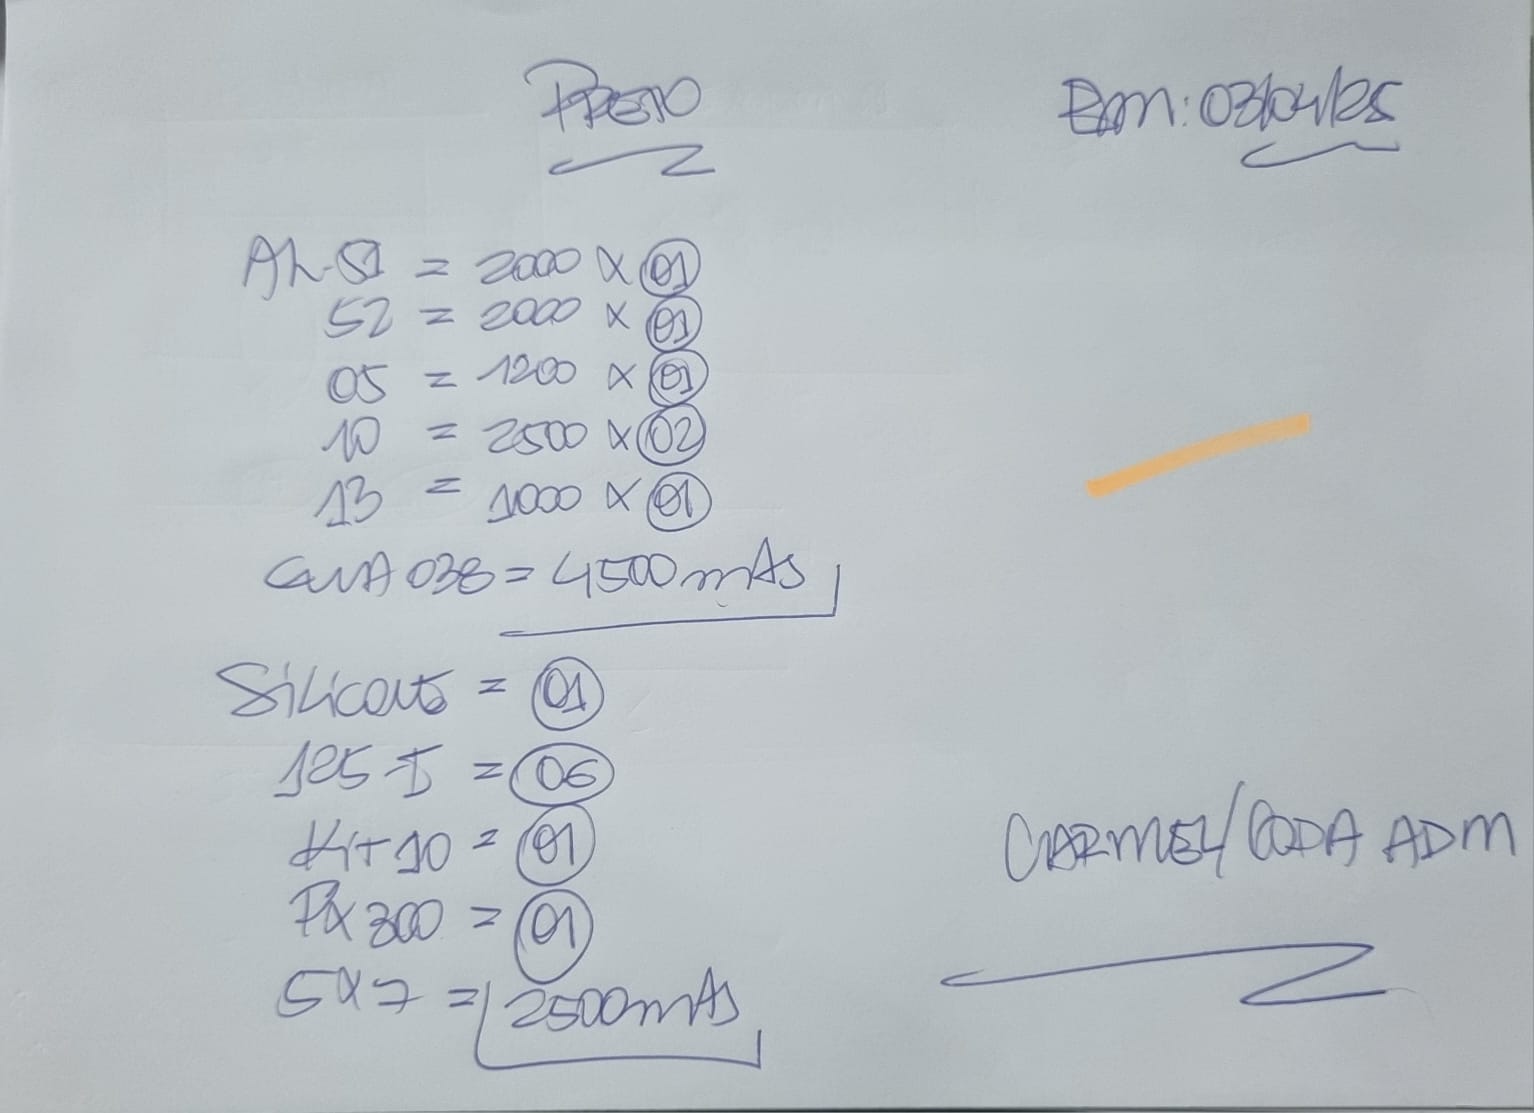 PRETO
Em: 03/04/25
AL-51 = 2000 x 01
52 = 2000 x 01
05 = 1200 x 01
10 = 2500 x 02
13 = 1000 x 01
GUIA 038 = 4500 mAs
Silicone = 01
125-I = 06
Kit 10 = 01
PX 300 = 01
5x7 = 2500 mAs
CARMEL/CODA ADM